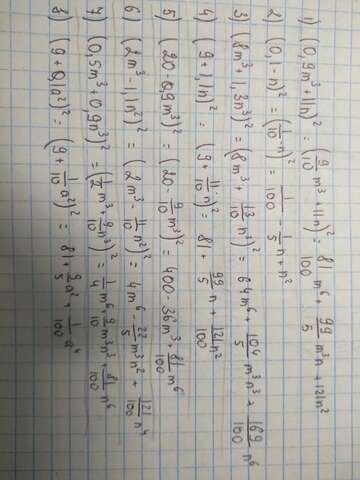 1) (0,9m³+11n)² = (9/10 m³+11n)² = 81/100 m⁶ + 99/5 m³n + 121n²
2) (0,1-n)² = (1/10-n)² = 1/100 - 1/5 n + n²
3) (8m³+1,3n³)² = (8m³ + 13/10 n³)² = 64m⁶ + 104/5 m³n³ + 169/100 n⁶
4) (9+1,1n)² = (9+ 11/10 n)² = 81 + 99/5 n + 121/100 n²
5) (20-0,9m³)² = (20- 9/10 m³)² = 400-36m³+ 81/100 m⁶
6) (2m³-1,1n²)² = (2m³- 11/10 n²)² = 4m⁶+ 22/5 m³n² + 121/100 n⁴
7) (0,5m³+0,9n³)² = (1/2 m³+ 9/10 n³)² = 1/4 m⁶+ 9/10 m³n³+ 81/100 n⁶
8) (9+0,1a²)² = (9+ 1/10 a²)² = 81+ 9/5 a²+ 1/100 a⁴